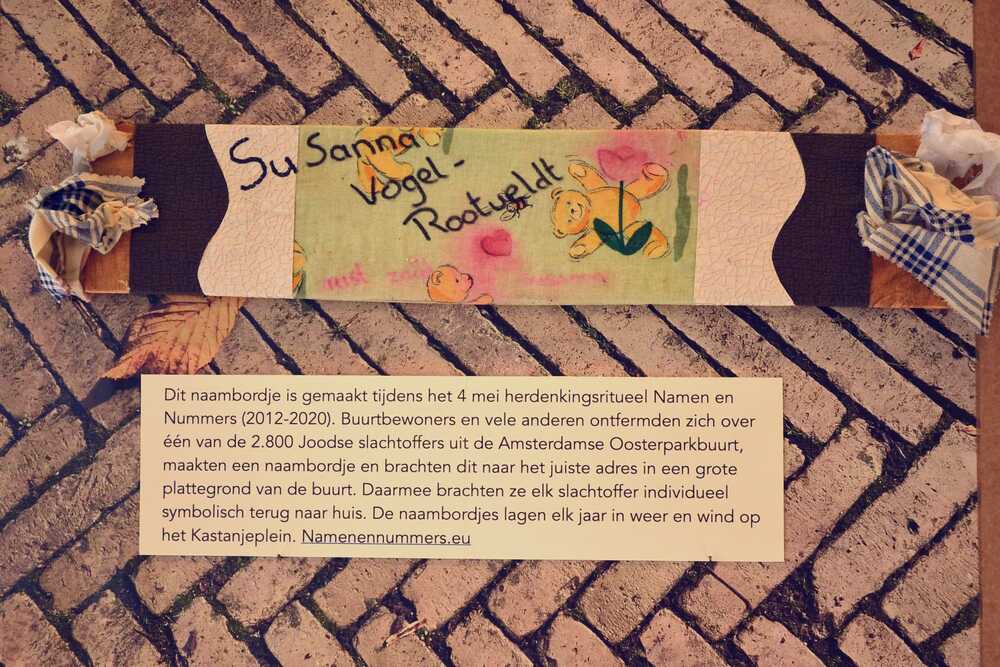 SuSanna
Vogel-
Rootveldt
Dit naambordje is gemaakt tijdens het 4 mei herdenkingsritueel Namen en
Nummers (2012-2020). Buurtbewoners en vele anderen ontfermden zich over
één van de 2.800 Joodse slachtoffers uit de Amsterdamse Oosterparkbuurt,
maakten een naambordje en brachten dit naar het juiste adres in een grote
plattegrond van de buurt. Daarmee brachten ze elk slachtoffer individueel
symbolisch terug naar huis. De naambordjes lagen elk jaar in weer en wind op
het Kastanjeplein. Namenennummers.eu